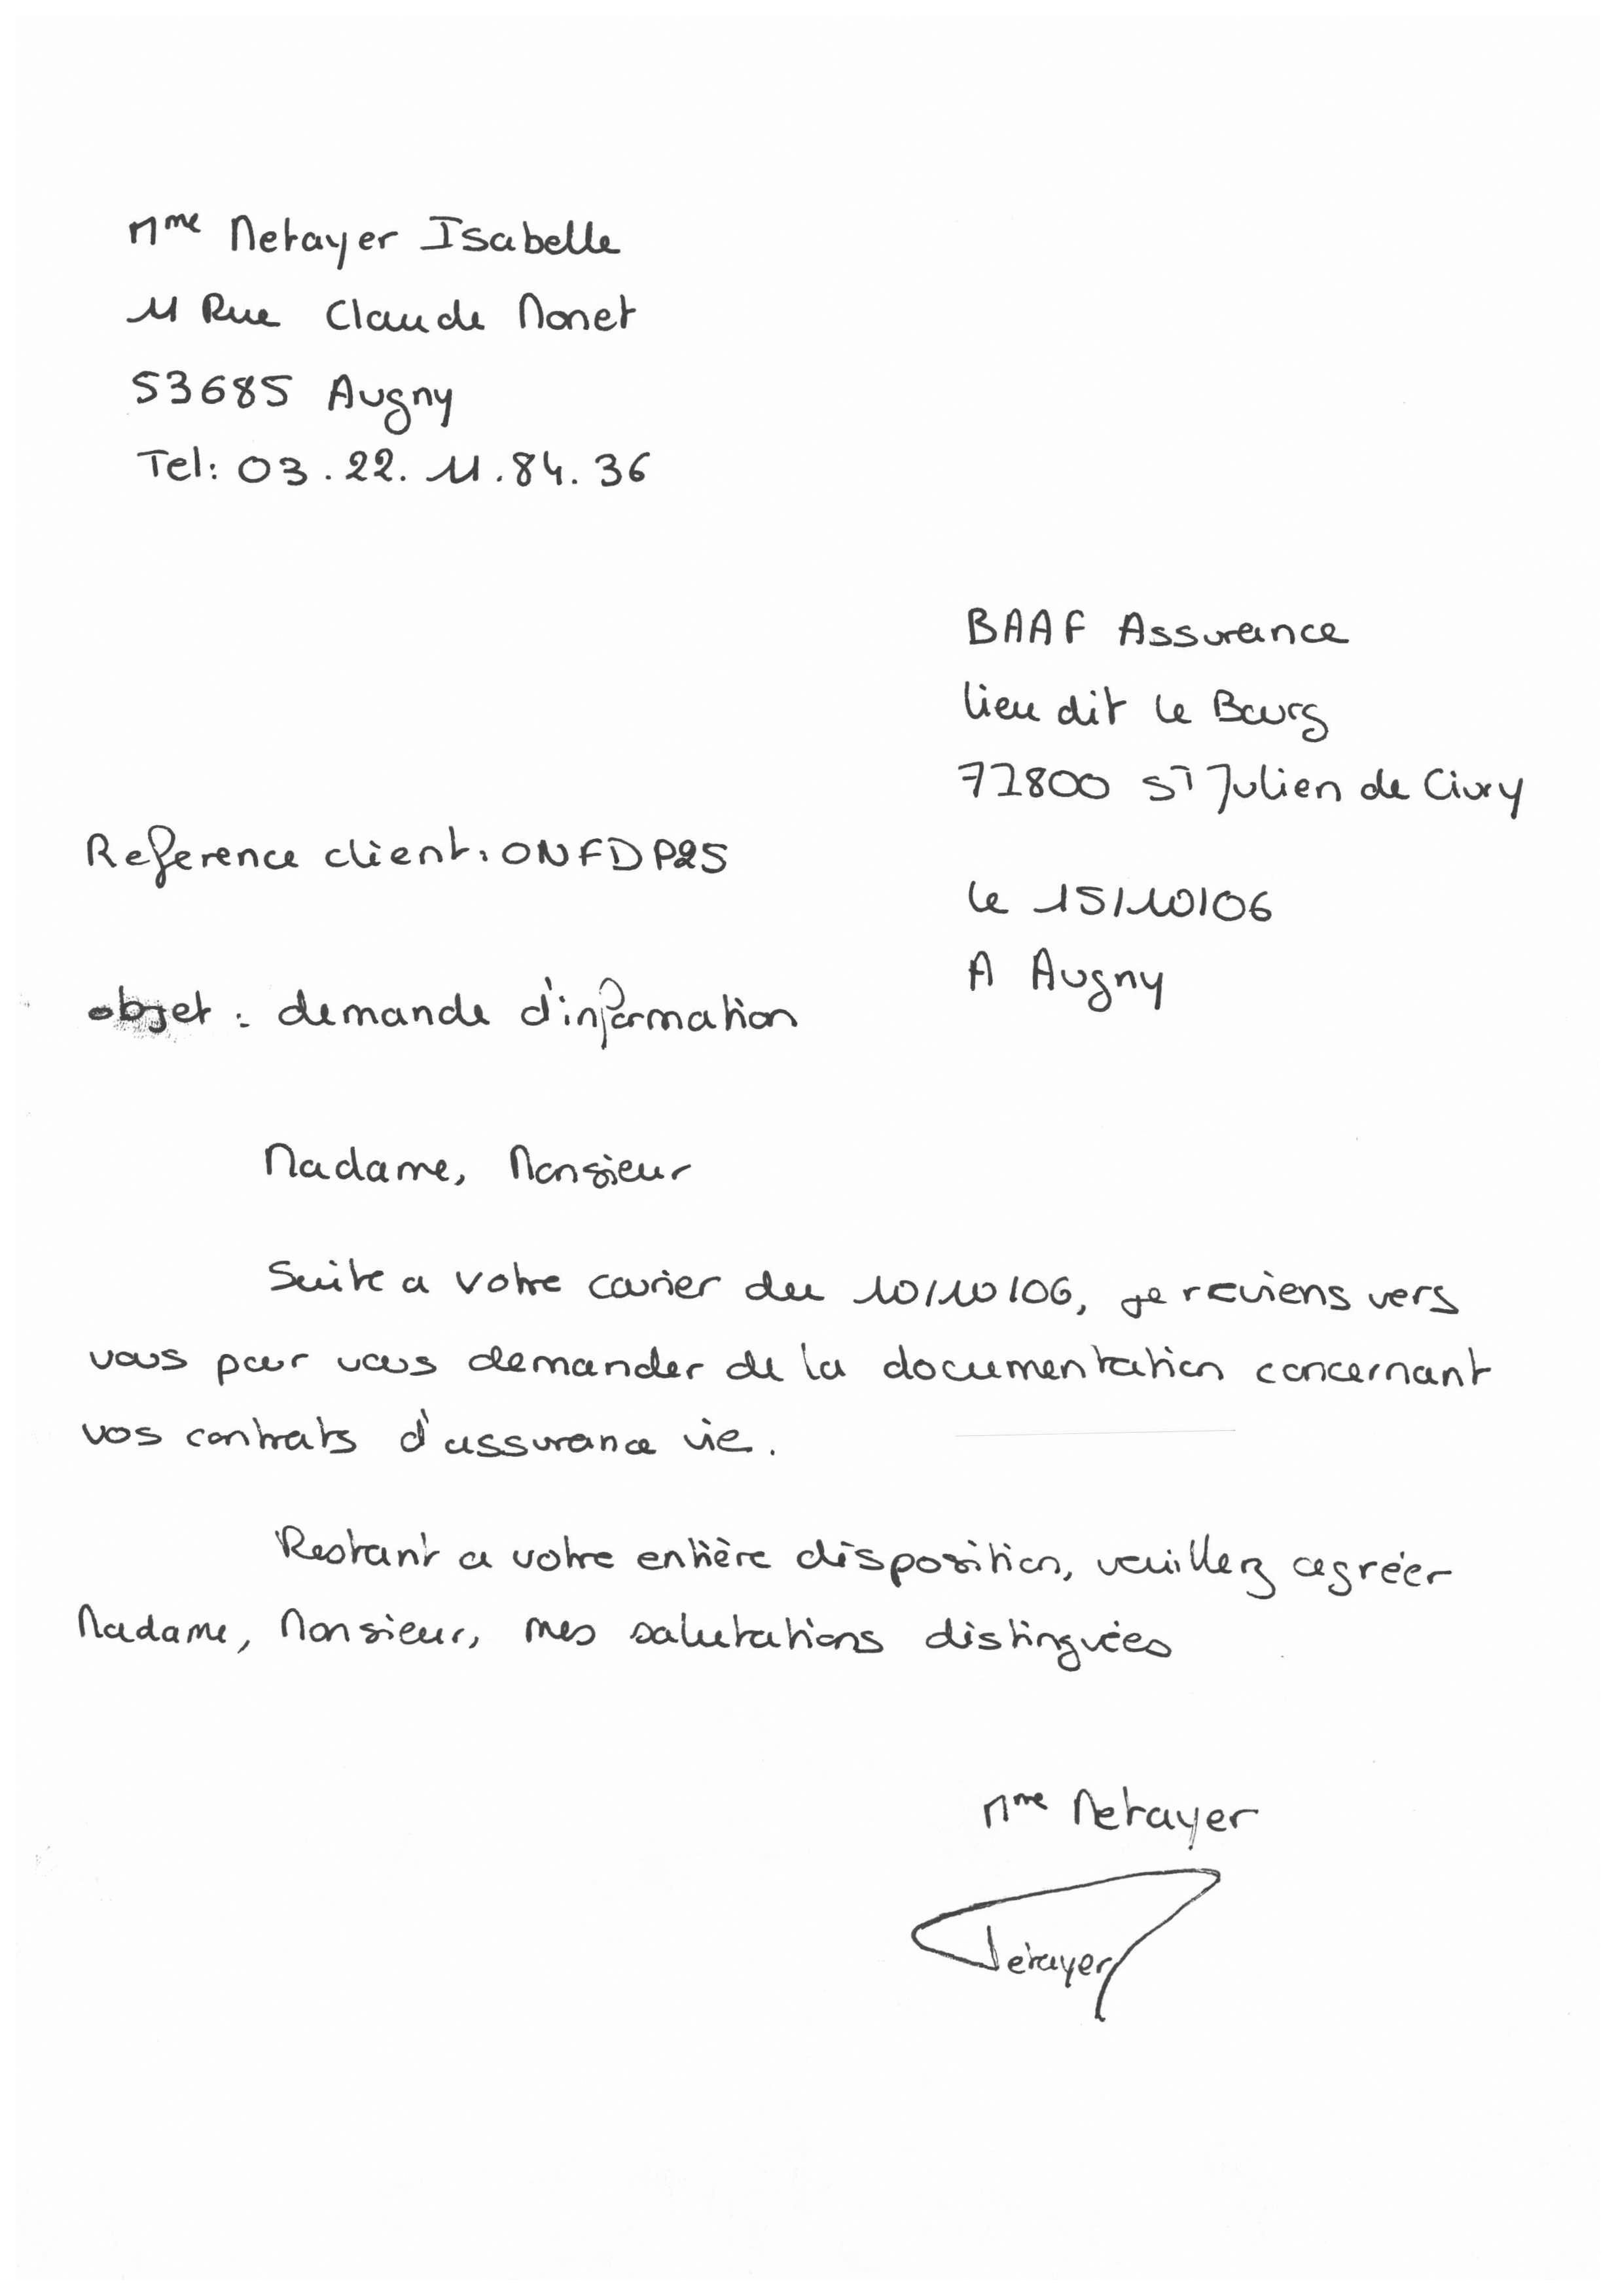 Mme Metayer Isabelle
11 Rue Claude Monet
53685 Augny
Tel: 03.22.11.84.36
BAAF Assurance
lieu dit le Bourg
71800 St Julien de Civry
Reference client: ONFDP25
le 15/10/06
A Augny
objet : demande d'information
Madame, Monsieur
Suite a votre courier du 10/10/06, je reviens vers
vous pour vous demander de la documentation concernant
vos contrats d'assurance vie.
Restant a votre entière disposition, veuillez agréer
Madame, Monsieur, mes salutations distinguées
Mme Metayer
Metayer